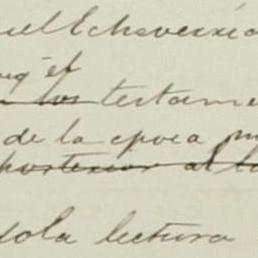 uel Echeverría
el
los testame
de la epoca
posterior al
sola lectura